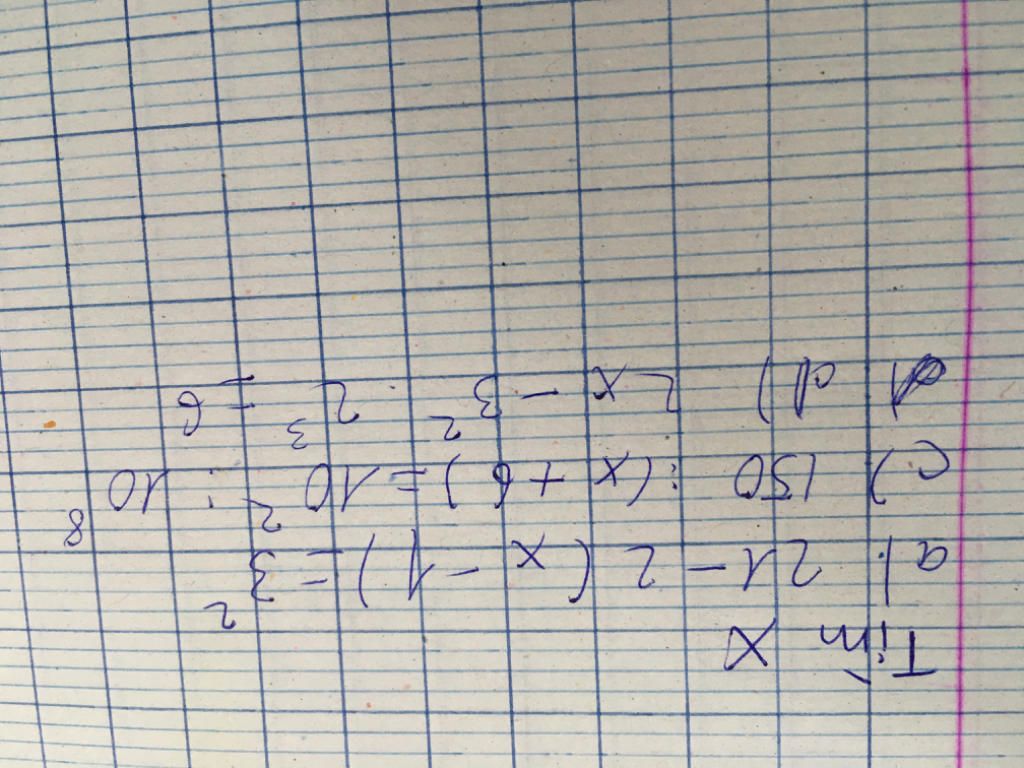 Tìm X
a) 21 - 2(x - 1) = 3²
c) 150 : (x + 6) = 10² : 10⁸
d) 2x - 3² . 2³ = 6